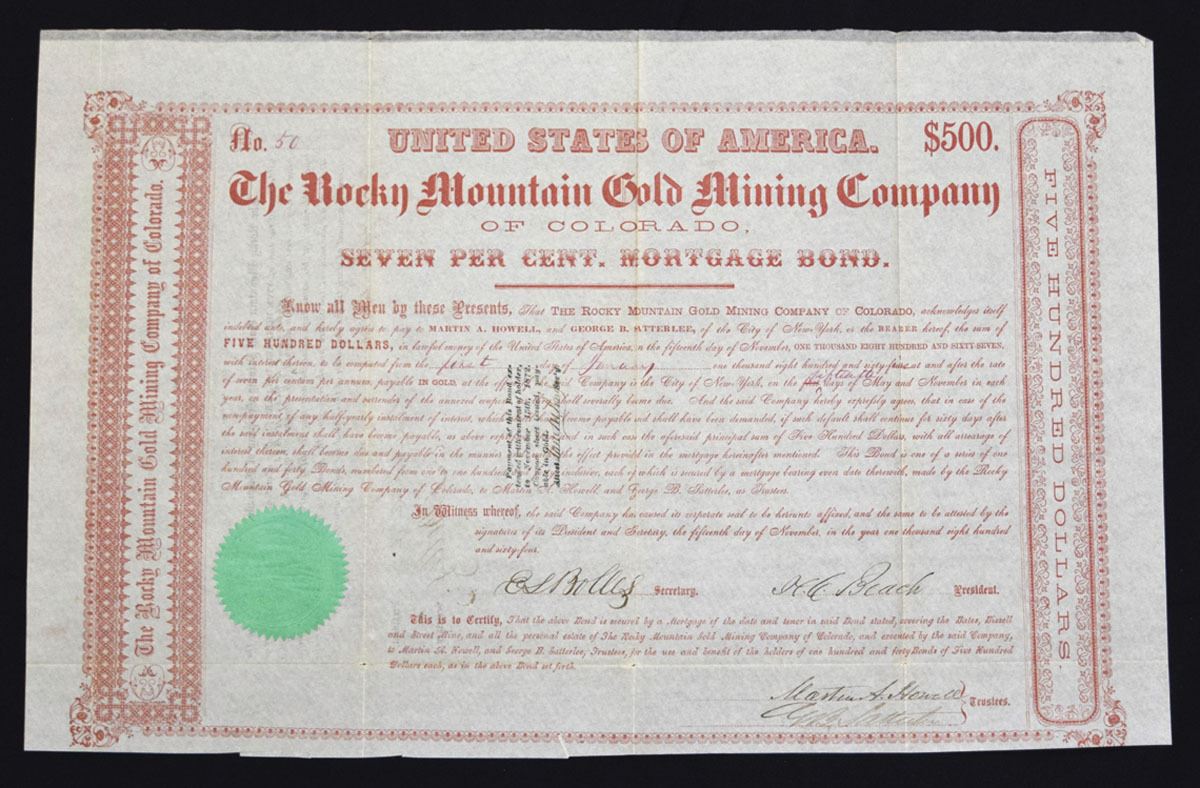 No. 50
UNITED STATES OF AMERICA.
$500.
The Rocky Mountain Gold Mining Company
OF COLORADO,
SEVEN PER CENT. MORTGAGE BOND.
Know all Men by these Presents, That THE ROCKY MOUNTAIN GOLD MINING COMPANY OF COLORADO, acknowledges itself
indebted unto, and hereby agrees to pay to MARTIN A. HOWELL, and GEORGE B. SATTERLEE, of the City of New-York, or the BEARER hereof, the sum of
FIVE HUNDRED DOLLARS, in lawful money of the United States of America, on the fifteenth day of November, ONE THOUSAND EIGHT HUNDRED AND SIXTY-SEVEN,
with interest thereon, to be computed from the first day of January one thousand eight hundred and sixty five at and after the rate
of seven per centum per annum, payable IN GOLD, at the office of the said Company in the City of New York, on the fifteenth days of May and November in each
year, on the presentation and surrender of the annexed coupons as they shall severally become due. And the said Company hereby expressly agrees, that in case of the
non-payment of any half-yearly instalment of interest, which shall have become payable and shall have been demanded, if such default shall continue for sixty days after
the said instalment shall have become payable, as above and in such case the aforesaid principal sum of Five Hundred Dollars, with all arrearage of
interest thereon, shall become due and payable in the manner the effect provided in the mortgage hereinafter mentioned. This Bond is one of a series of one
hundred and forty Bonds, numbered from one to one hundred inclusive, each of which is secured by a mortgage bearing even date therewith, made by the Rocky
Mountain Gold Mining Company of Colorado, to Martin Howell, and George B. Satterlee, as Trustees.
Payment of this Bond ex-
tended with consent of holder,
to November 15th, 1872,
Coupon sheet issued, pay-
able in Gold.
Attest
In Witness whereof, the said Company has caused its corporate seal to be hereunto affixed, and the same to be attested by the
signatures of its President and Secretary, the fifteenth day of November, in the year one thousand eight hundred
and sixty-four.
C S Bolles Secretary. H C Beach President.
This is to Certify, That the above Bond is secured by a Mortgage of the date and tenor in said Bond stated, covering the Bates, Bissell
and Street Mine, and all the personal estate of The Rocky Mountain Gold Mining Company of Colorado, and executed by the said Company,
to Martin A. Howell, and George B. Satterlee, Trustees, for the use and benefit of the holders of one hundred and forty Bonds of Five Hundred
Dollars each, as in the above Bond set forth.
Martin A. Howell
Geo B Satterlee
Trustees.
The Rocky Mountain Gold Mining Company of Colorado.
FIVE HUNDRED DOLLARS.